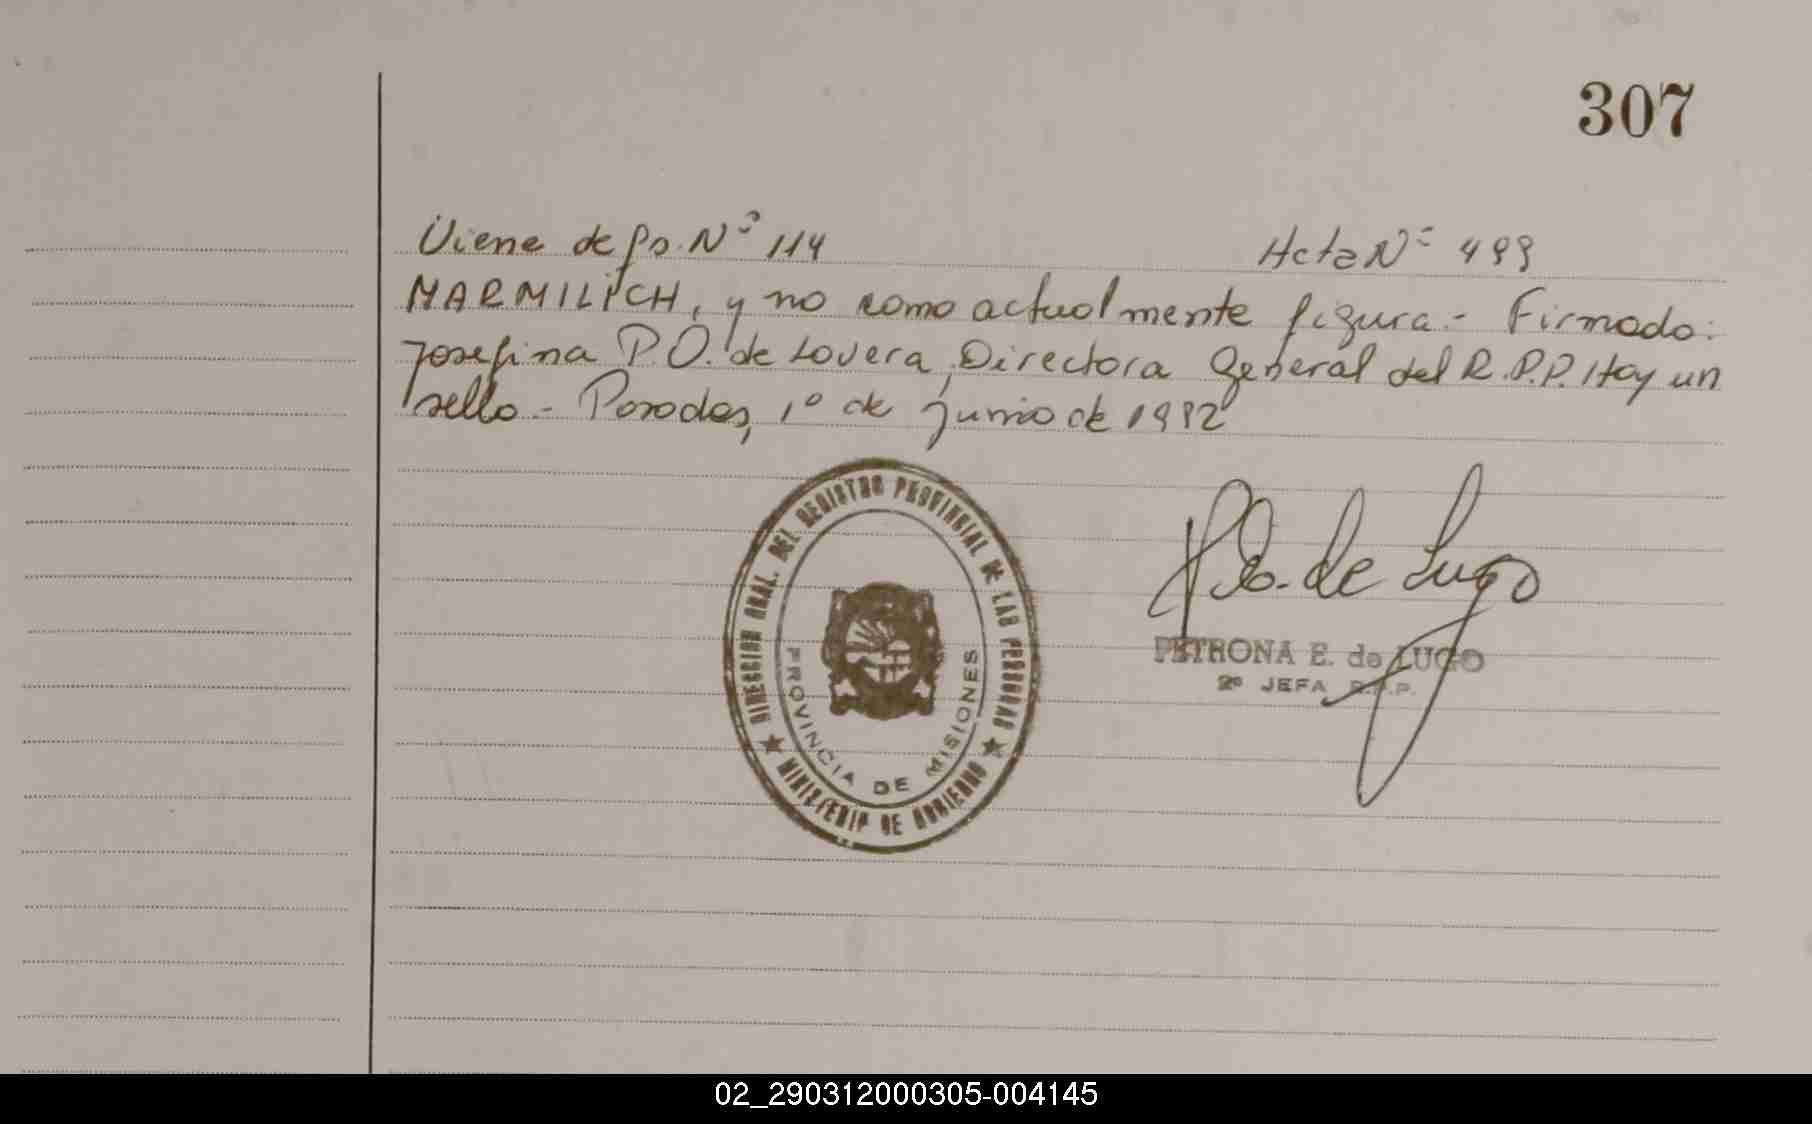 307
Viene de fs. Nº 114 Acta Nº 499
MARMILICH, y no como actualmente figura.- Firmado:
Josefina P.O. de Lovera, Directora General del R.P.P. Hay un
sello - Posadas, 1º de junio de 1982
DIRECCION GRAL. DEL REGISTRO PROVINCIAL DE LAS PERSONAS
PROVINCIA DE MISIONES
MINISTERIO DE GOBIERNO
de Lugo
PETRONA E. de LUGO
2º JEFA R.P.P.
02_290312000305-004145